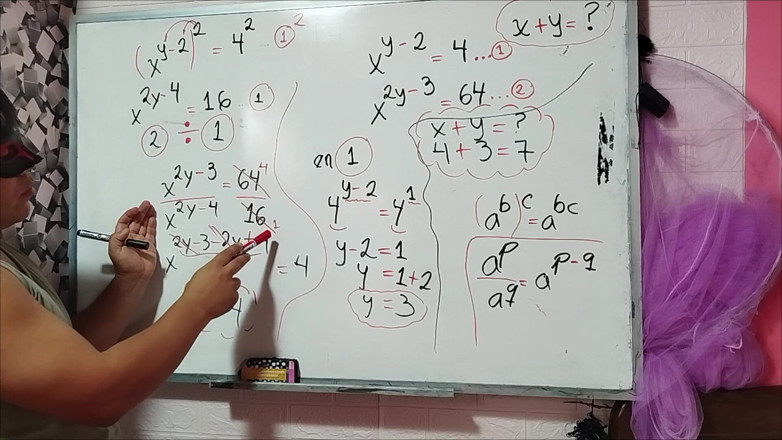 x + y = ?
(x^{y-2})^2 = 4^2 ... ①^2
x^{2y-4} = 16 ... ①
② ÷ ①
x^{2y-3} = 64 4
x^{2y-4} 16 1
x^{2y-3-2y+4} = 4
4
x^{y-2} = 4 ... ①
x^{2y-3} = 64 ... ②
x + y = ?
4 + 3 = 7
en ①
4^{y-2} = 4^1
y-2 = 1
y = 1+2
y = 3
(a^b)^c = a^{bc}
a^p/a^q = a^{p-q}